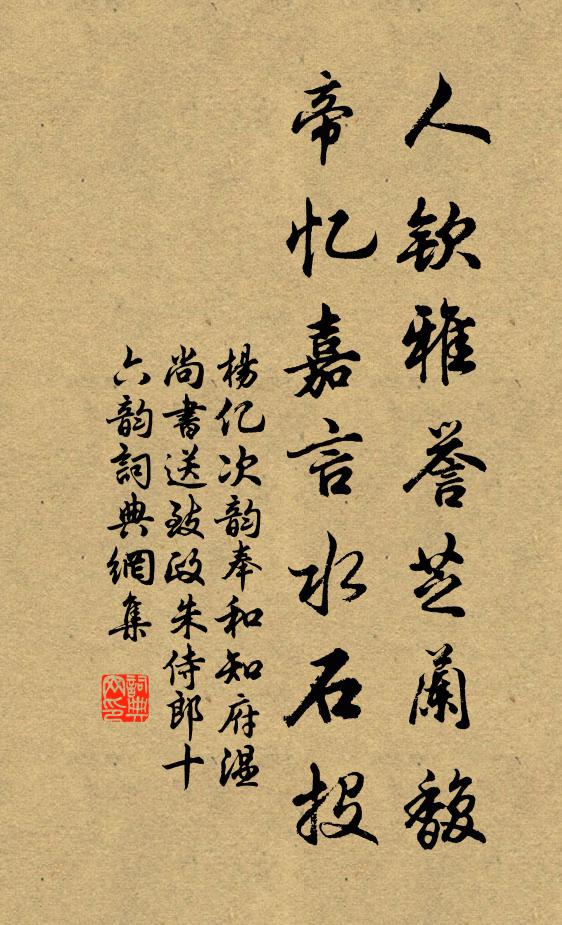 人欽雅誉芝蘭馥
帝忆嘉言水石投
楊亿次韵奉和知府温
尚書送致政朱侍郎十
六韵詞典網集